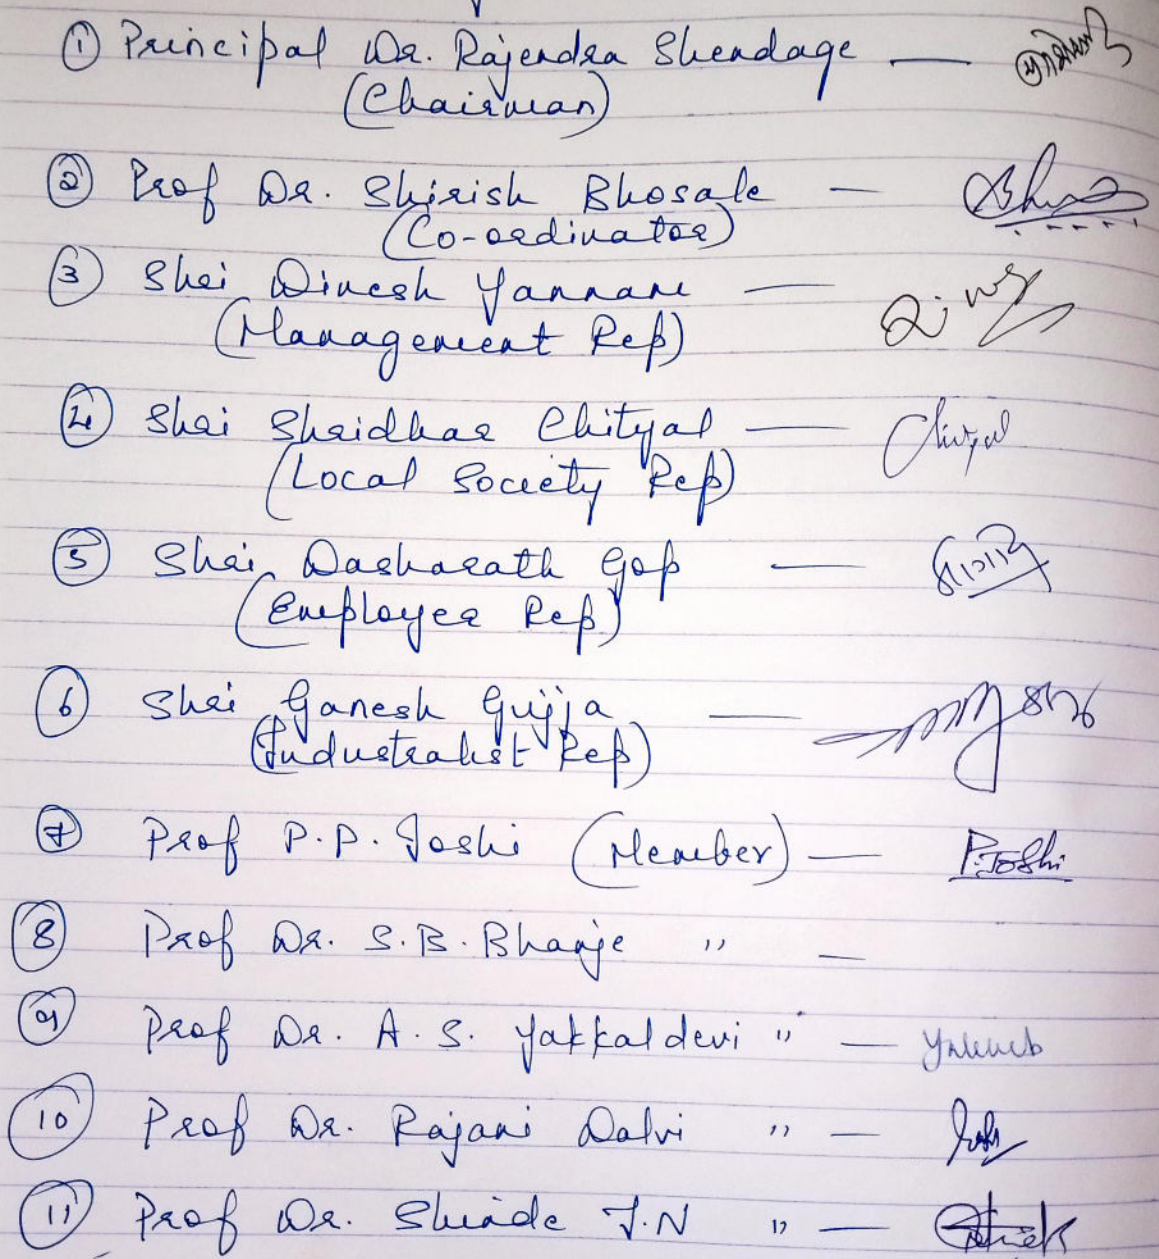 ① Principal Dr. Rajendra Shendage —
(Chairman)
② Prof Dr. Shirish Bhosale —
(Co-ordinator)
③ Shri Dinesh Yannam —
(Management Rep)
④ Shri Shridhar Chityal —
(Local Society Rep)
⑤ Shri Dasharath Gop —
(Employer Rep)
⑥ Shri Ganesh Gujja —
(Industralist Rep)
⑦ Prof P.P. Joshi (Member) — P.Joshi
⑧ Prof Dr. S.B. Bhanje " —
⑨ Prof Dr. A.S. Yakkaldevi " —
⑩ Prof Dr. Rajani Dalvi " —
⑪ Prof Dr. Shinde J.N " —